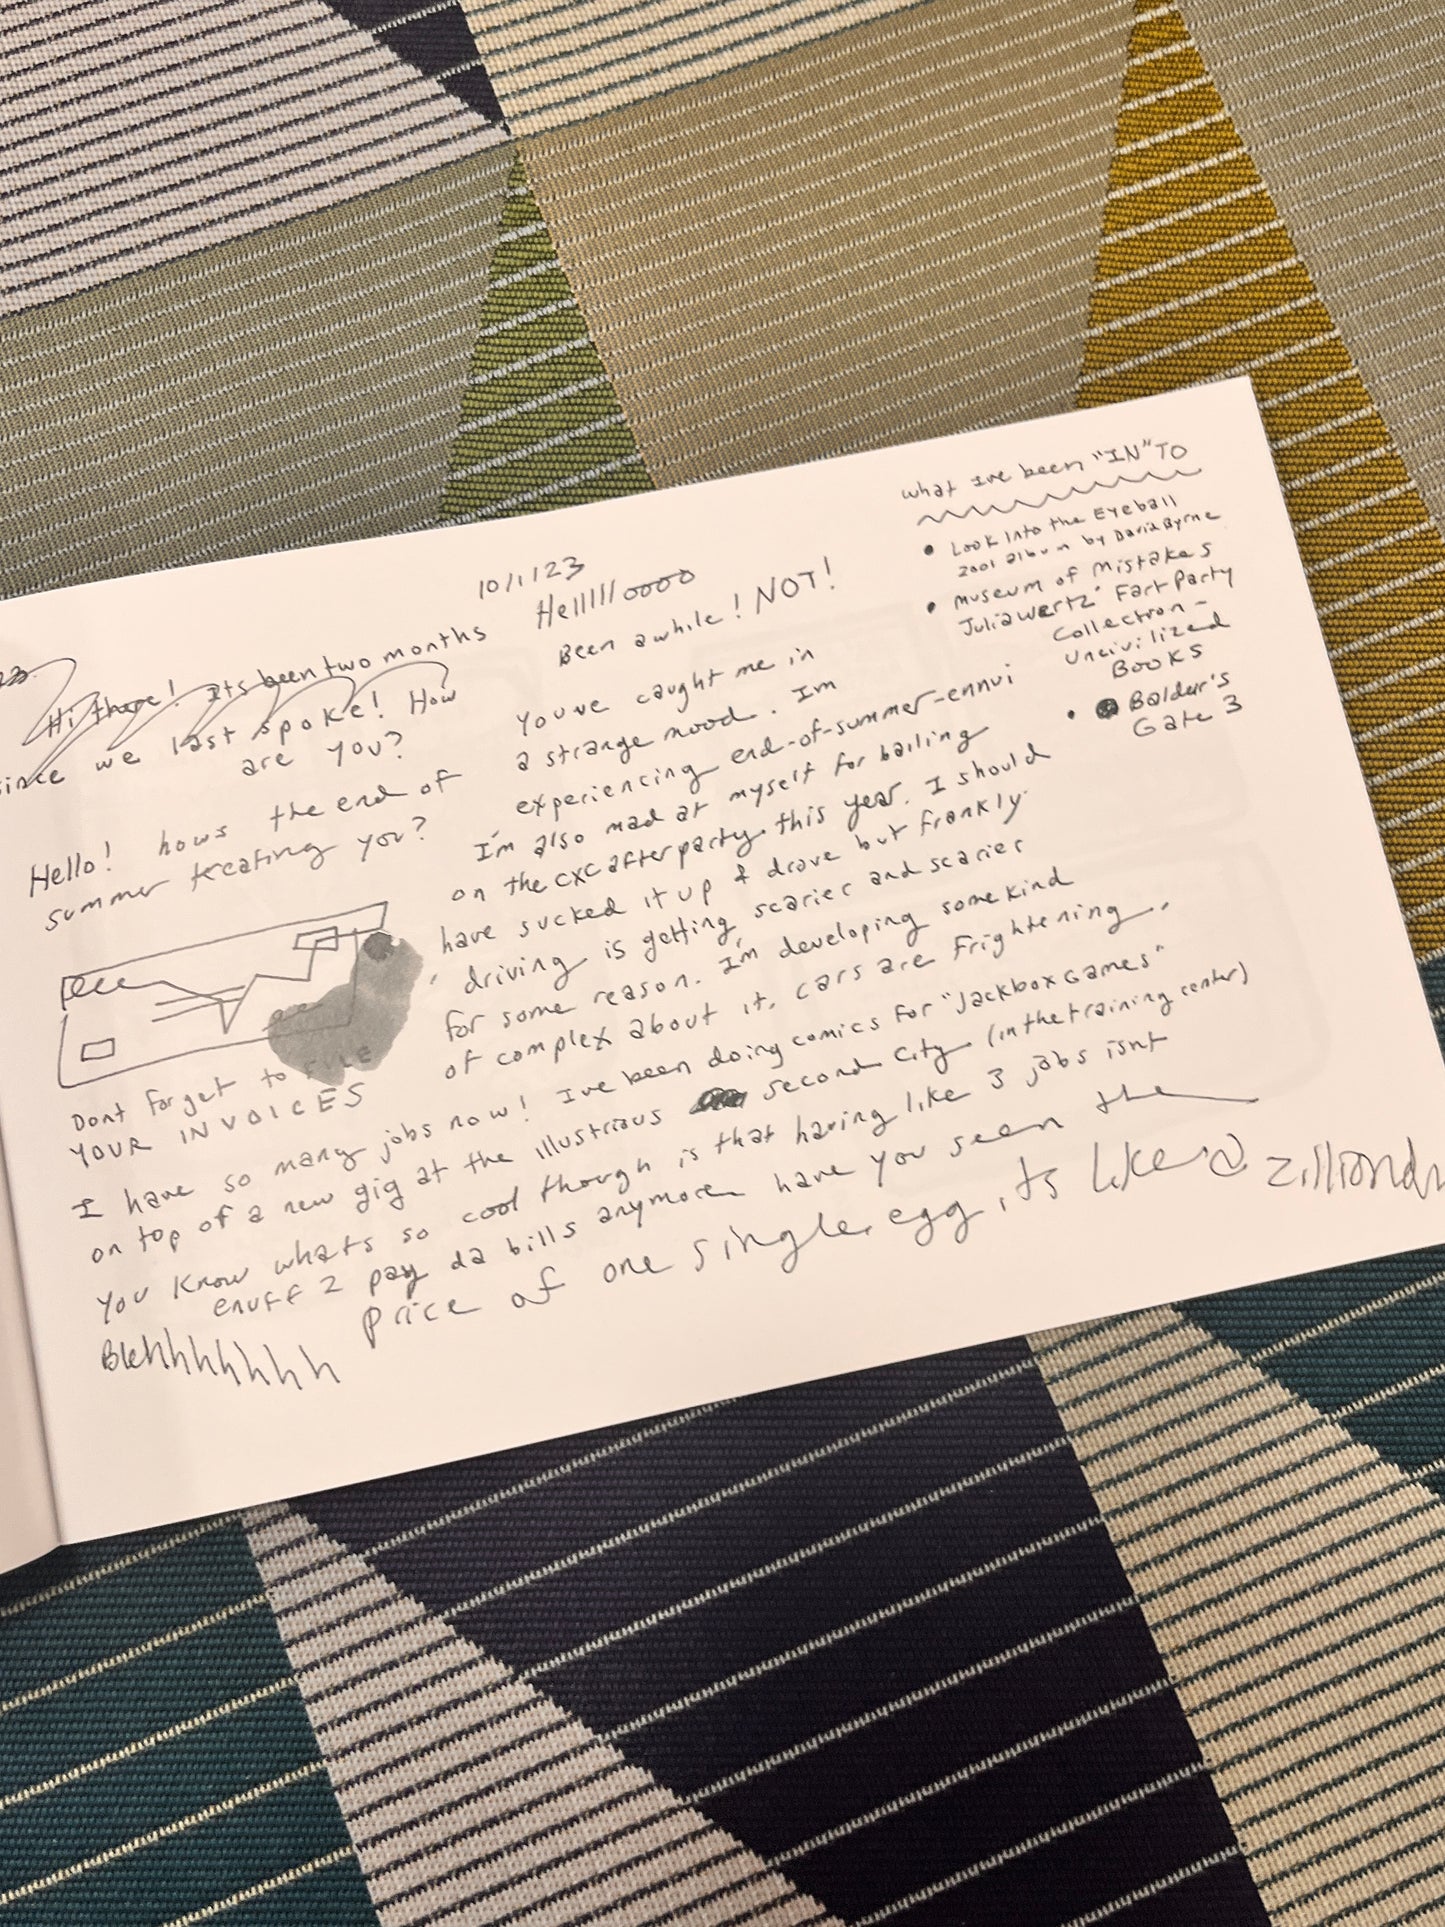 23
Hi there! its been two months
since we last spoke! How
are you?
Hello! hows the end of
summer treating you?
Dont forget to FILE
YOUR INVOICES
10/1/23
Hellllloooo
Been awhile! NOT!
You've caught me in
a strange mood. Im
experiencing end-of-summer-ennui
I'm also mad at myself for bailing
on the cxc afterparty this year. I should
have sucked it up & drove but frankly
driving is getting scarier and scarier
for some reason. I'm developing some kind
of complex about it. cars are frightening.
I have so many jobs now! I've been doing comics for "Jackbox Games"
on top of a new gig at the illustrious second city (in the training center)
You know whats so cool though is that having like 3 jobs isnt
enuff 2 pay da bills anymore have you seen the
price of one single egg, its like a zilliond
Blehhhhhhhh
what Ive been "IN" TO
• Look Into the Eyeball
2001 album by David Byrne
• museum of mistakes
Julia Wertz' Fart Party
Collection -
Uncivilized
Books
• Baldur's
Gate 3